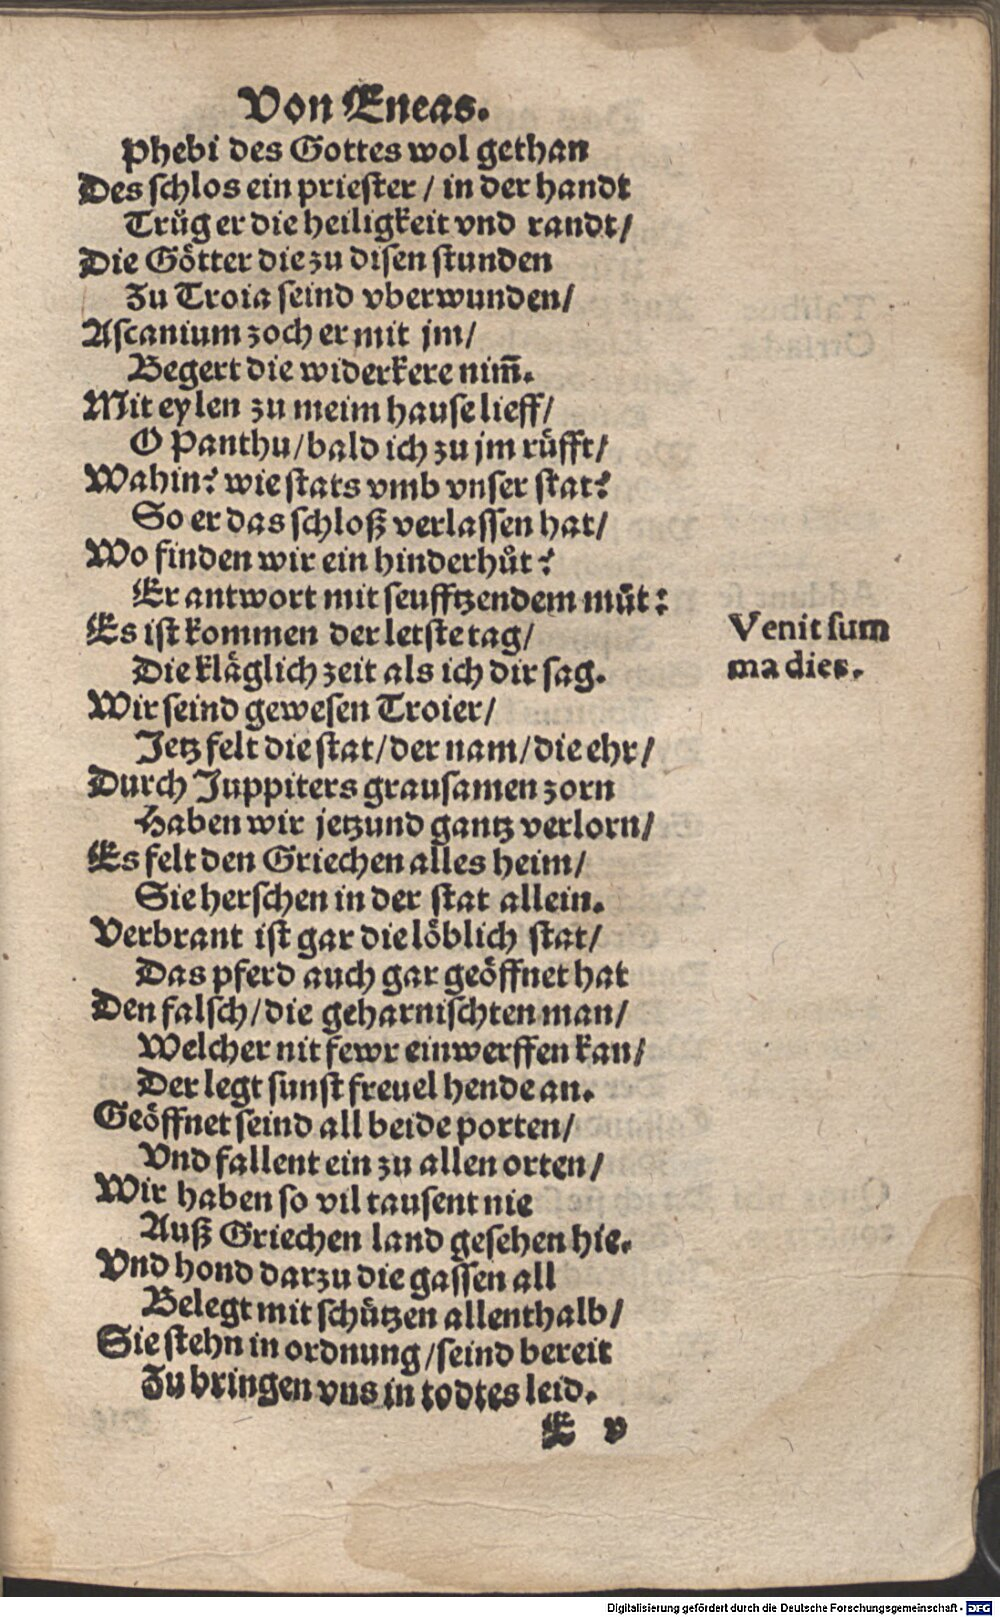 Von Eneas.
Phebi des Gottes wol gethan
Des schlos ein priester / in der handt
Truͦg er die heiligkeit vnd randt /
Die Goͤtter die zu disen stunden
Zu Troia seind vberwunden /
Ascanium zoch er mit jm /
Begert die widerkere nim̄.
Mit eylen zu meim hause lieff /
O Panthu / bald ich zu jm ruͤfft /
Wahin? wie stats vmb vnser stat?
So er das schloß verlassen hat /
Wo finden wir ein hinderhuͦt?
Er antwort mit seufftzendem muͦt:
Es ist kommen der letste tag /
Die klaͤglich zeit als ich dir sag.
Venit sum
ma dies.
Wir seind gewesen Troier /
Jetz felt die stat / der nam / die ehr /
Durch Juppiters grausamen zorn
Haben wir jetzund gantz verlorn /
Es felt den Griechen alles heim /
Sie herschen in der stat allein.
Verbrant ist gar die loͤblich stat /
Das pferd auch gar geoͤffnet hat
Den falsch / die geharnischten man /
Welcher nit fewr einwerffen kan /
Der legt sunst freuel hende an.
Geoͤffnet seind all beide porten /
Vnd fallent ein zu allen orten /
Wir haben so vil tausent nie
Auß Griechen land gesehen hie.
Vnd hond darzu die gassen all
Belegt mit schuͤtzen allenthalb /
Sie stehn in ordnung / seind bereit
Zu bringen vns in todtes leid.
E v
Digitalisierung gefördert durch die Deutsche Forschungsgemeinschaft - DFG